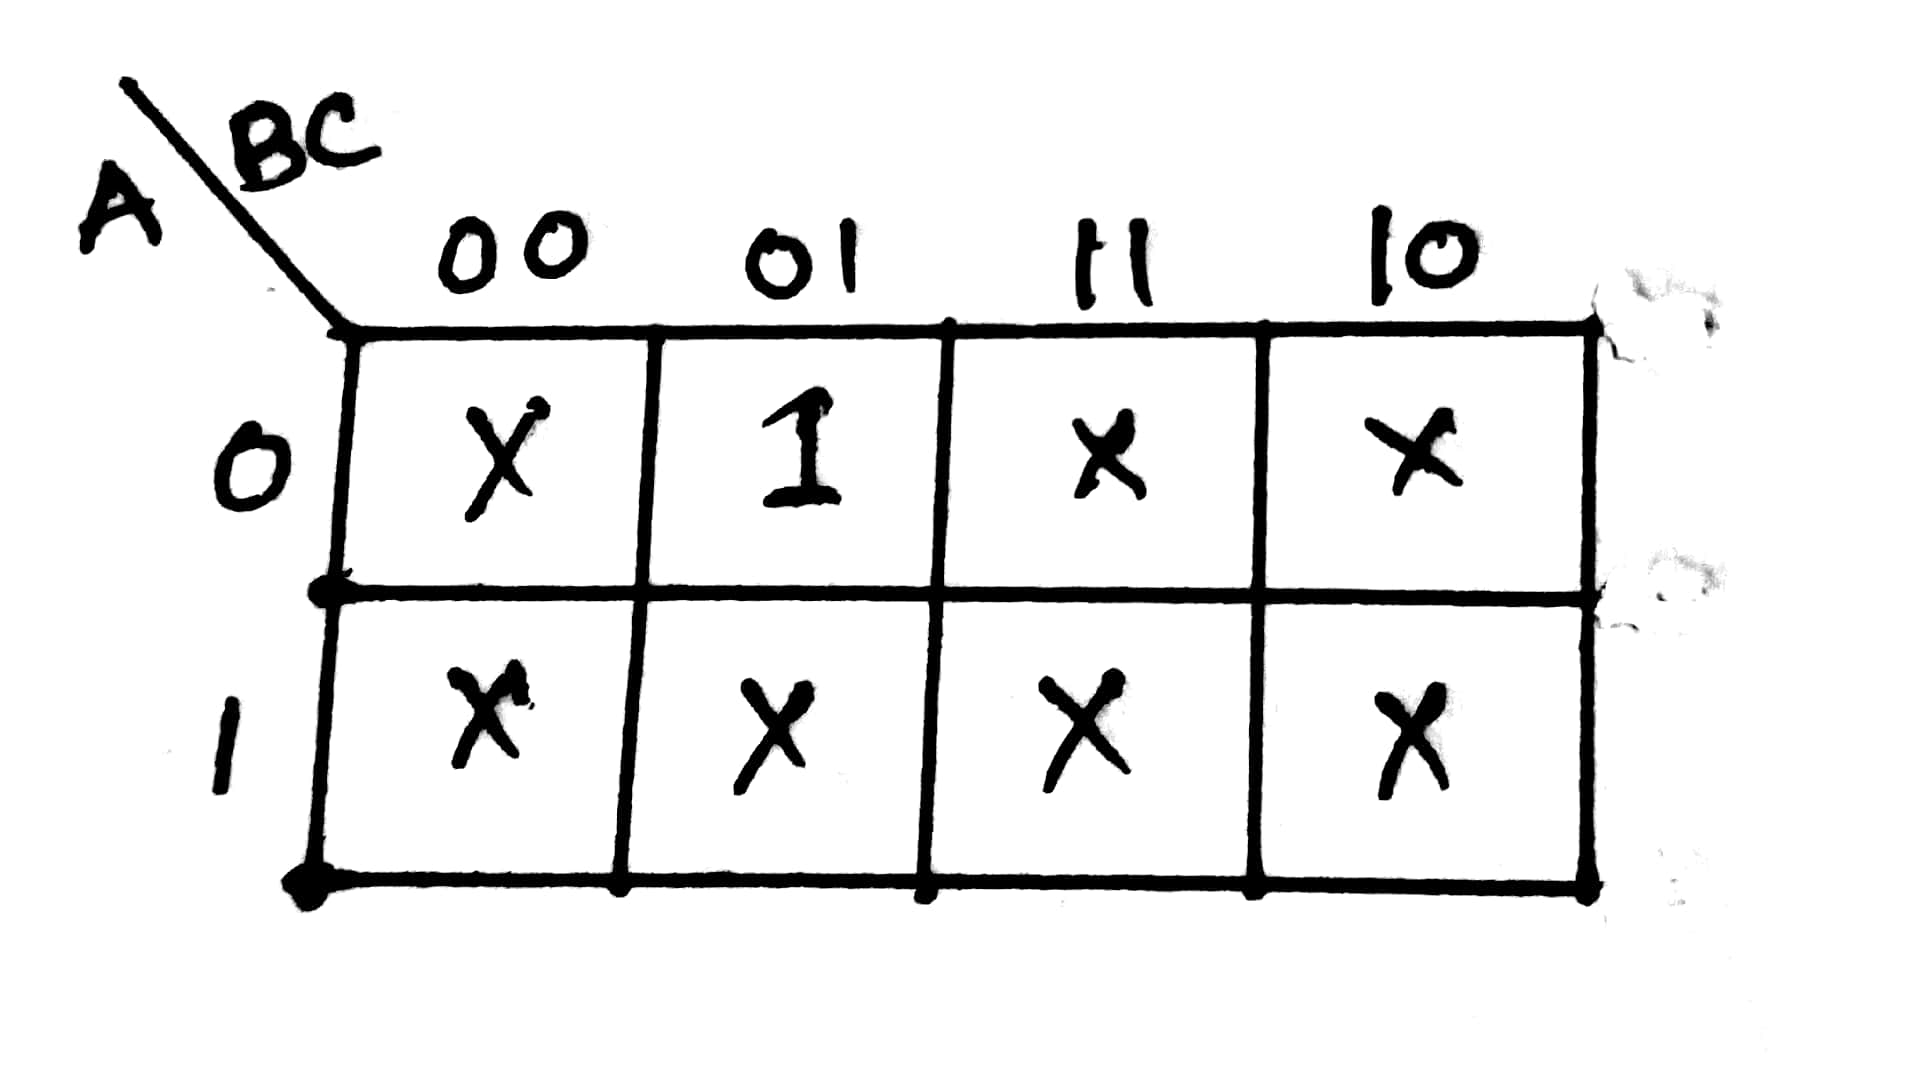 A BC
00 01 11 10
0 X 1 X X
1 X X X X